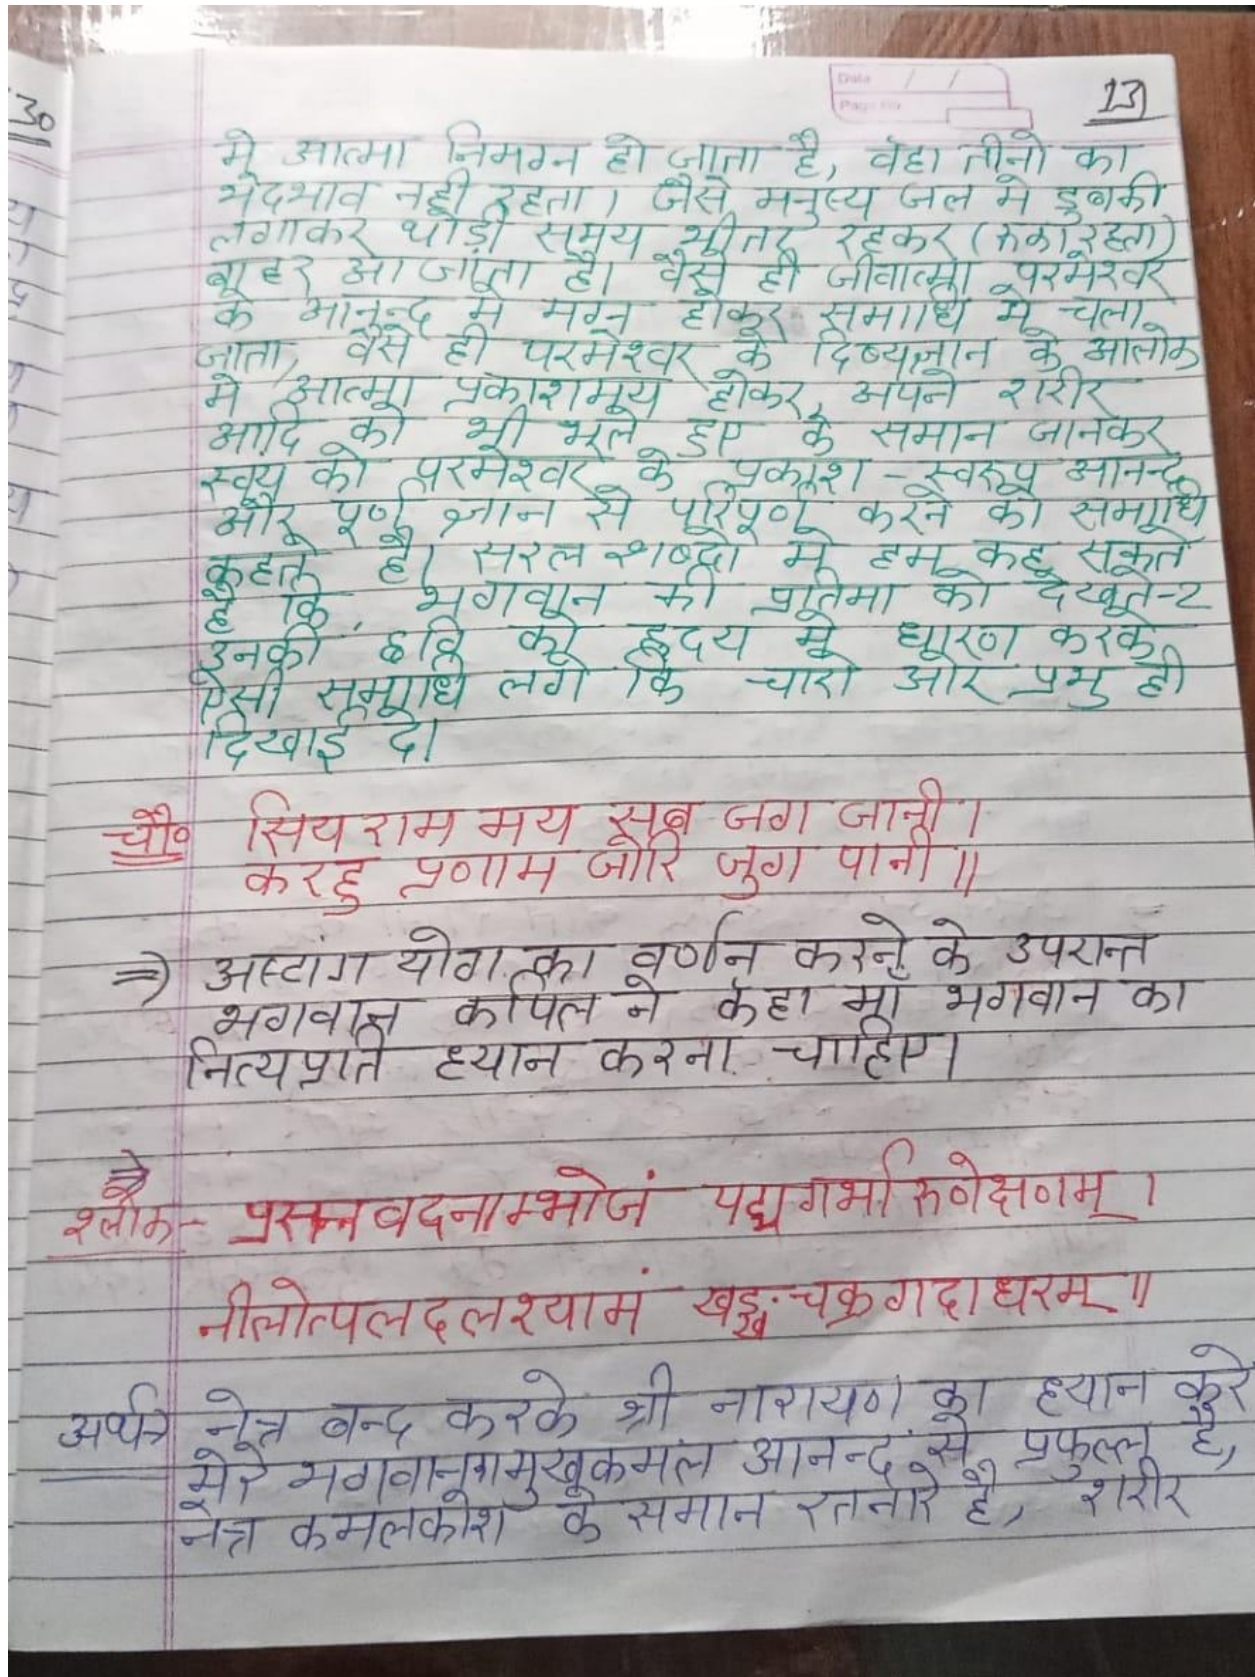 30
Date / /
Page No
131
मे आत्मा निमग्न हो जाता है, वँहा तीनो का
भेदभाव नही रहता। जैसे मनुष्य जल मे डुबकी
लगाकर थोड़ी समय भीतर रहकर (रुका रहता)
बाहर आ जाता है। वैसे ही जीवात्मा परमेश्वर
के आनन्द मे मग्न होकर समाधि मे चला
जाता, वैसे ही परमेश्वर के दिव्यज्ञान के आलोक
मे आत्मा प्रकाशमय होकर, अपने शरीर
आदि को भी भूले हुए के समान जानकर
स्वयं को परमेश्वर के प्रकाश - स्वरूप आनन्द
और पूर्ण ज्ञान से परिपूर्ण करने को समाधि
कहते है। सरल शब्दो मे हम कह सकते
है कि, भगवान की प्रतिमा को देखते-2
उनकी छवि को हृदय मे धारण करके
ऐसी समाधि लगे कि चारो ओर प्रभु ही
दिखाई दे।
चौ० सिय राम मय सब जग जानी।
करहु प्रणाम जोरि जुग पानी॥
⇒ अष्टांग योग का वर्णन करने के उपरान्त
भगवान कपिल ने कँहा माँ भगवान का
नित्यप्रति ध्यान करना चाहिए।
⇒
श्लोक - प्रसन्नवदनाम्भोजं पद्मगर्भारुणेक्षणम्।
नीलोत्पलदलश्यामं चक्रगदाधरम्॥
अर्थ→ नेत्र बन्द करके श्री नारायण का ध्यान करे
मेरे भगवान का मुखकमल आनन्द से प्रफुल्ल है,
नेत्र कमलकोश के समान रतनारे है, शरीर